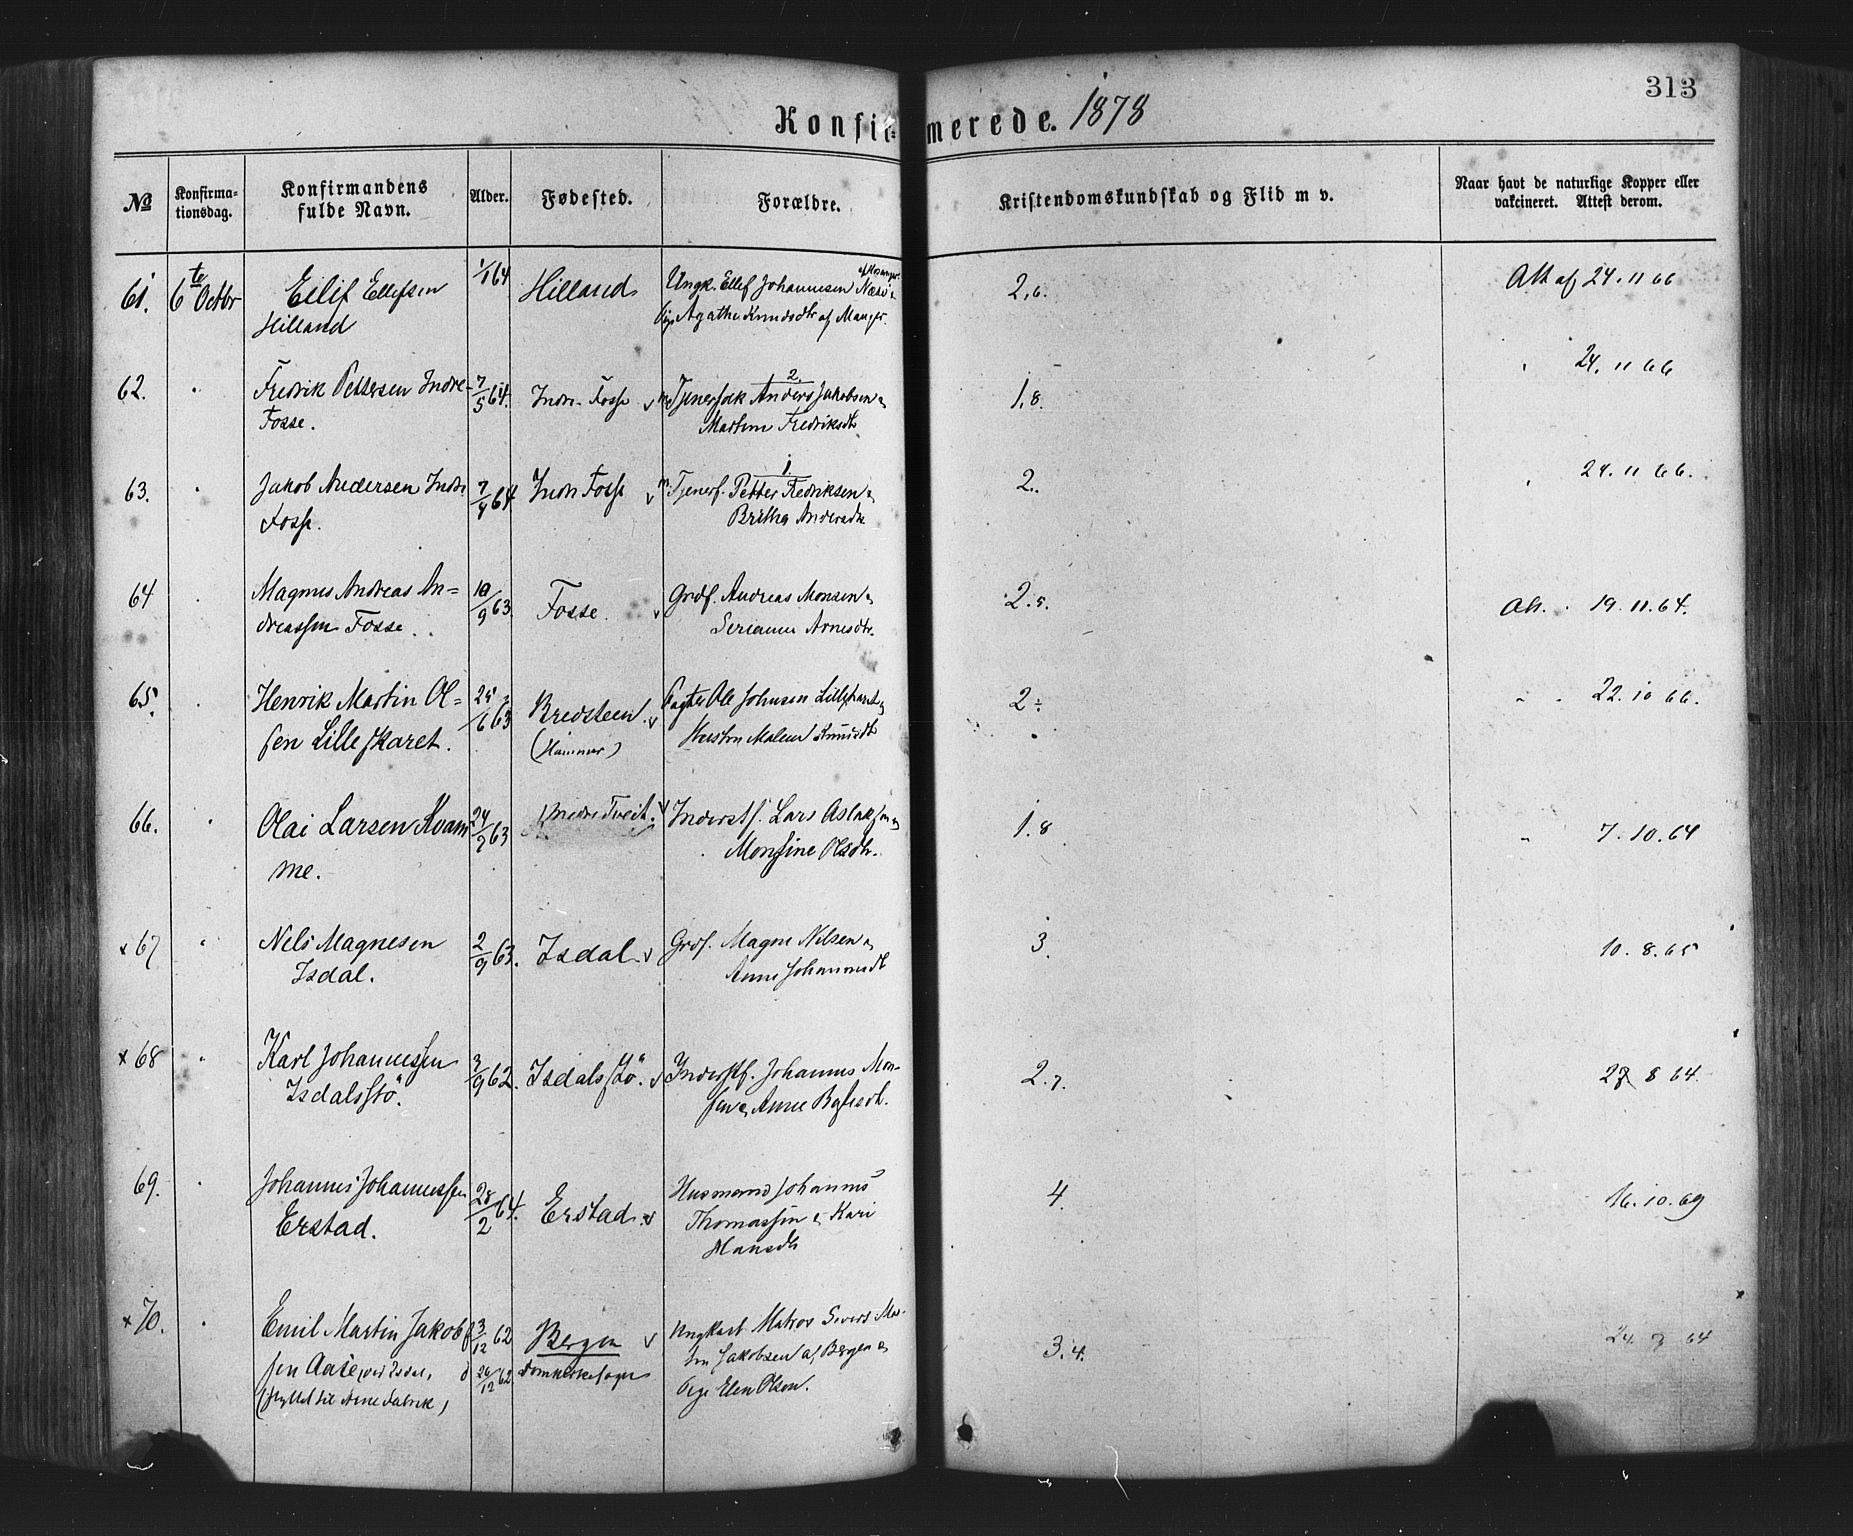 313
Konfirmerede. 1878
№
Konfirma-
tionsdag.
Konfirmandens
fulde Navn.
Alder.
Fødested.
Forældre.
Kristendomskundskab og Flid m v.
Naar havt de naturlige Kopper eller
vakcineret. Attest derom.
61. 6te Octbr Eilif Ellefsen 1/1 64 Hilland Ungk. Ellef Johannesen Næsø 2,6. Att af 24. 11 66
Hilland Agathe Knudsdtr af Manger.
62. " Fredrik Pettersen Indre- 7/5 64. Indre Fosse v Tjenerfolk Anders Jakobsen 1,8. " 24. 11 66
Fosse. Martine Fredriksdtr
63. " Jakob Andersen Indre 7/4 64 Indre Fosse v Tjenerf. Petter Fredriksen 2. " 24. 11 66.
Fosse. Britha Andersdtr
64 Magnus Andreas An= 10/9 63. Fosse. v Grdf. Andreas Monsen 2.5. Att. 19. 11. 64.
dreassen Fosse. Serianna Arnesdtr.
65. Henrik Martin Ol- 25/6 63 Bredsteen v Ole Johnsen Lilleskaret 2÷ " 22. 10 66.
sen Lilleskaret. (Hammer) Malene Knudsdtr
66. " Olai Larsen Kvam 24/2 63 Indre Tveit. v Inderstf. Lars Aslaksen 1.8 " 7. 10. 64
me. Monsine Olsdtr.
x 67 " Nels Magnesen 2/9 63. Isdal v Grdf. Magne Nilsen 3. 10. 8. 65
Isdal. Anne Johannesdtr
x 68 " Karl Johannessen 3/9 62. Isdalsstö. v Inderstf. Johannes Mon- 2.7. 8 64.
Isdalsstö. sen Anne
69. " Johannes Johannessen 28/2 64. Erstad. v Husmand Johannes 4. 16. 10. 69
Erstad. Thomassen & Kari
Hansdtr
x 70. " Emil Martin Jakob 3/12 62 Bergen v Ungkarl Matros Sivert Mar- 3.4. 24. 64
sen Aase, ved Isdal, d 26/12 62 Domkirkesogn tin Jakobsen af Bergen &
(flyttet til Arne Fabrik) Pige Elen Olsen.